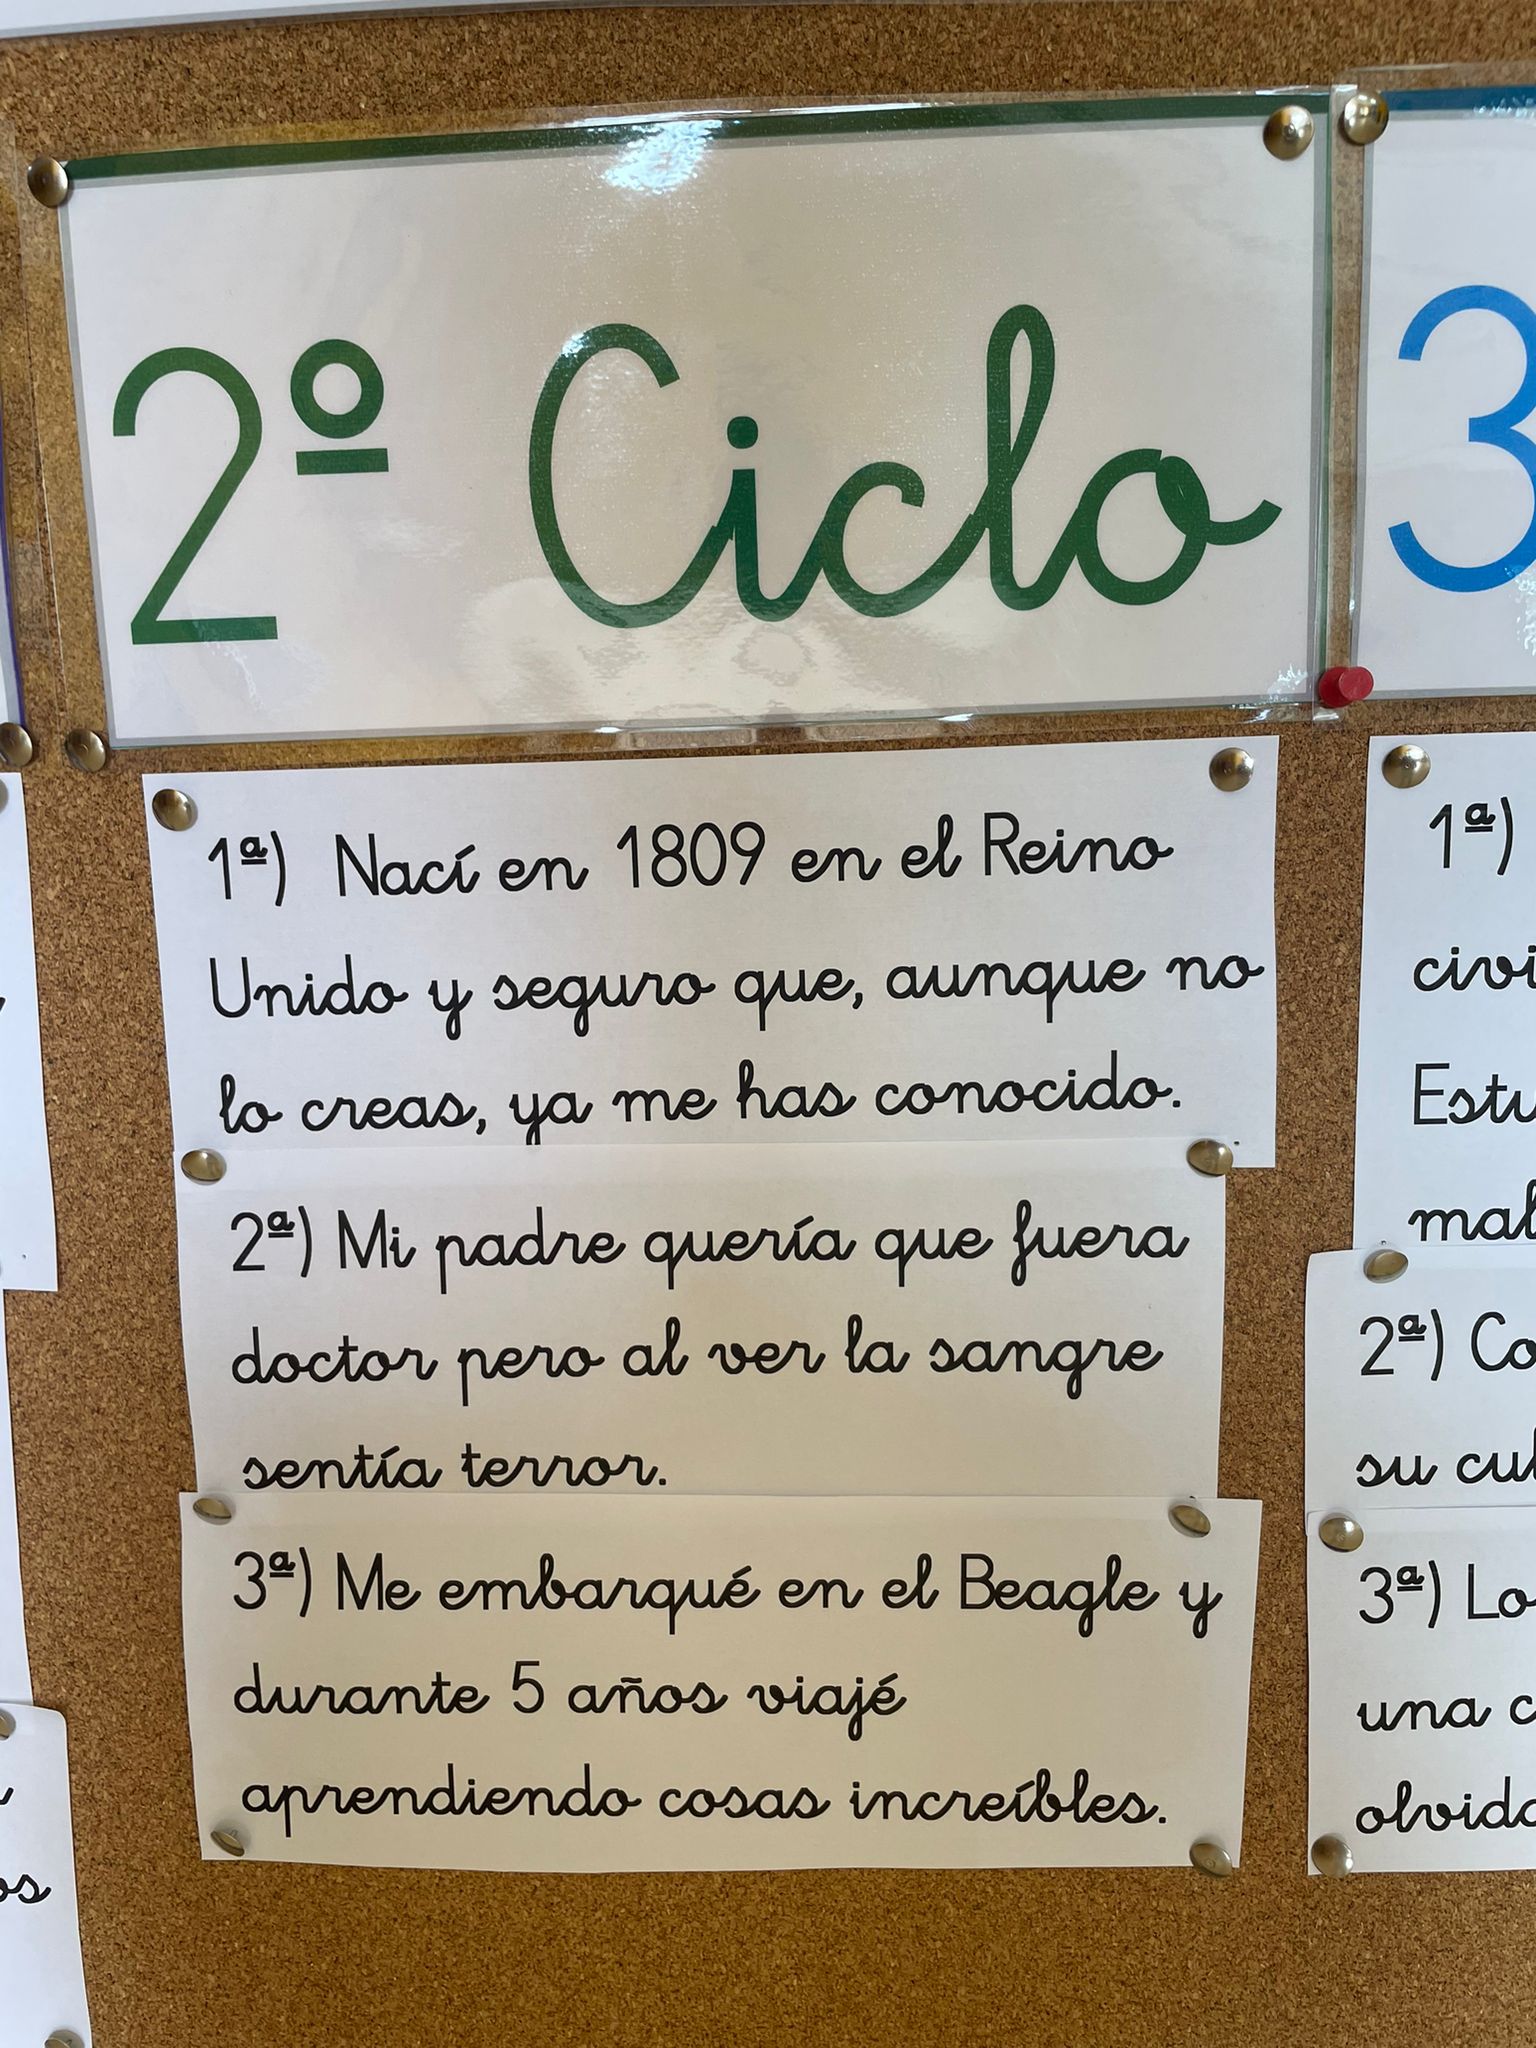 2º Ciclo
3
1ª) Nací en 1809 en el Reino
Unido y seguro que, aunque no
lo creas, ya me has conocido.
2ª) Mi padre quería que fuera
doctor pero al ver la sangre
sentía terror.
3ª) Me embarqué en el Beagle y
durante 5 años viajé
aprendiendo cosas increíbles.
1ª)
2ª)
su
3ª)
una